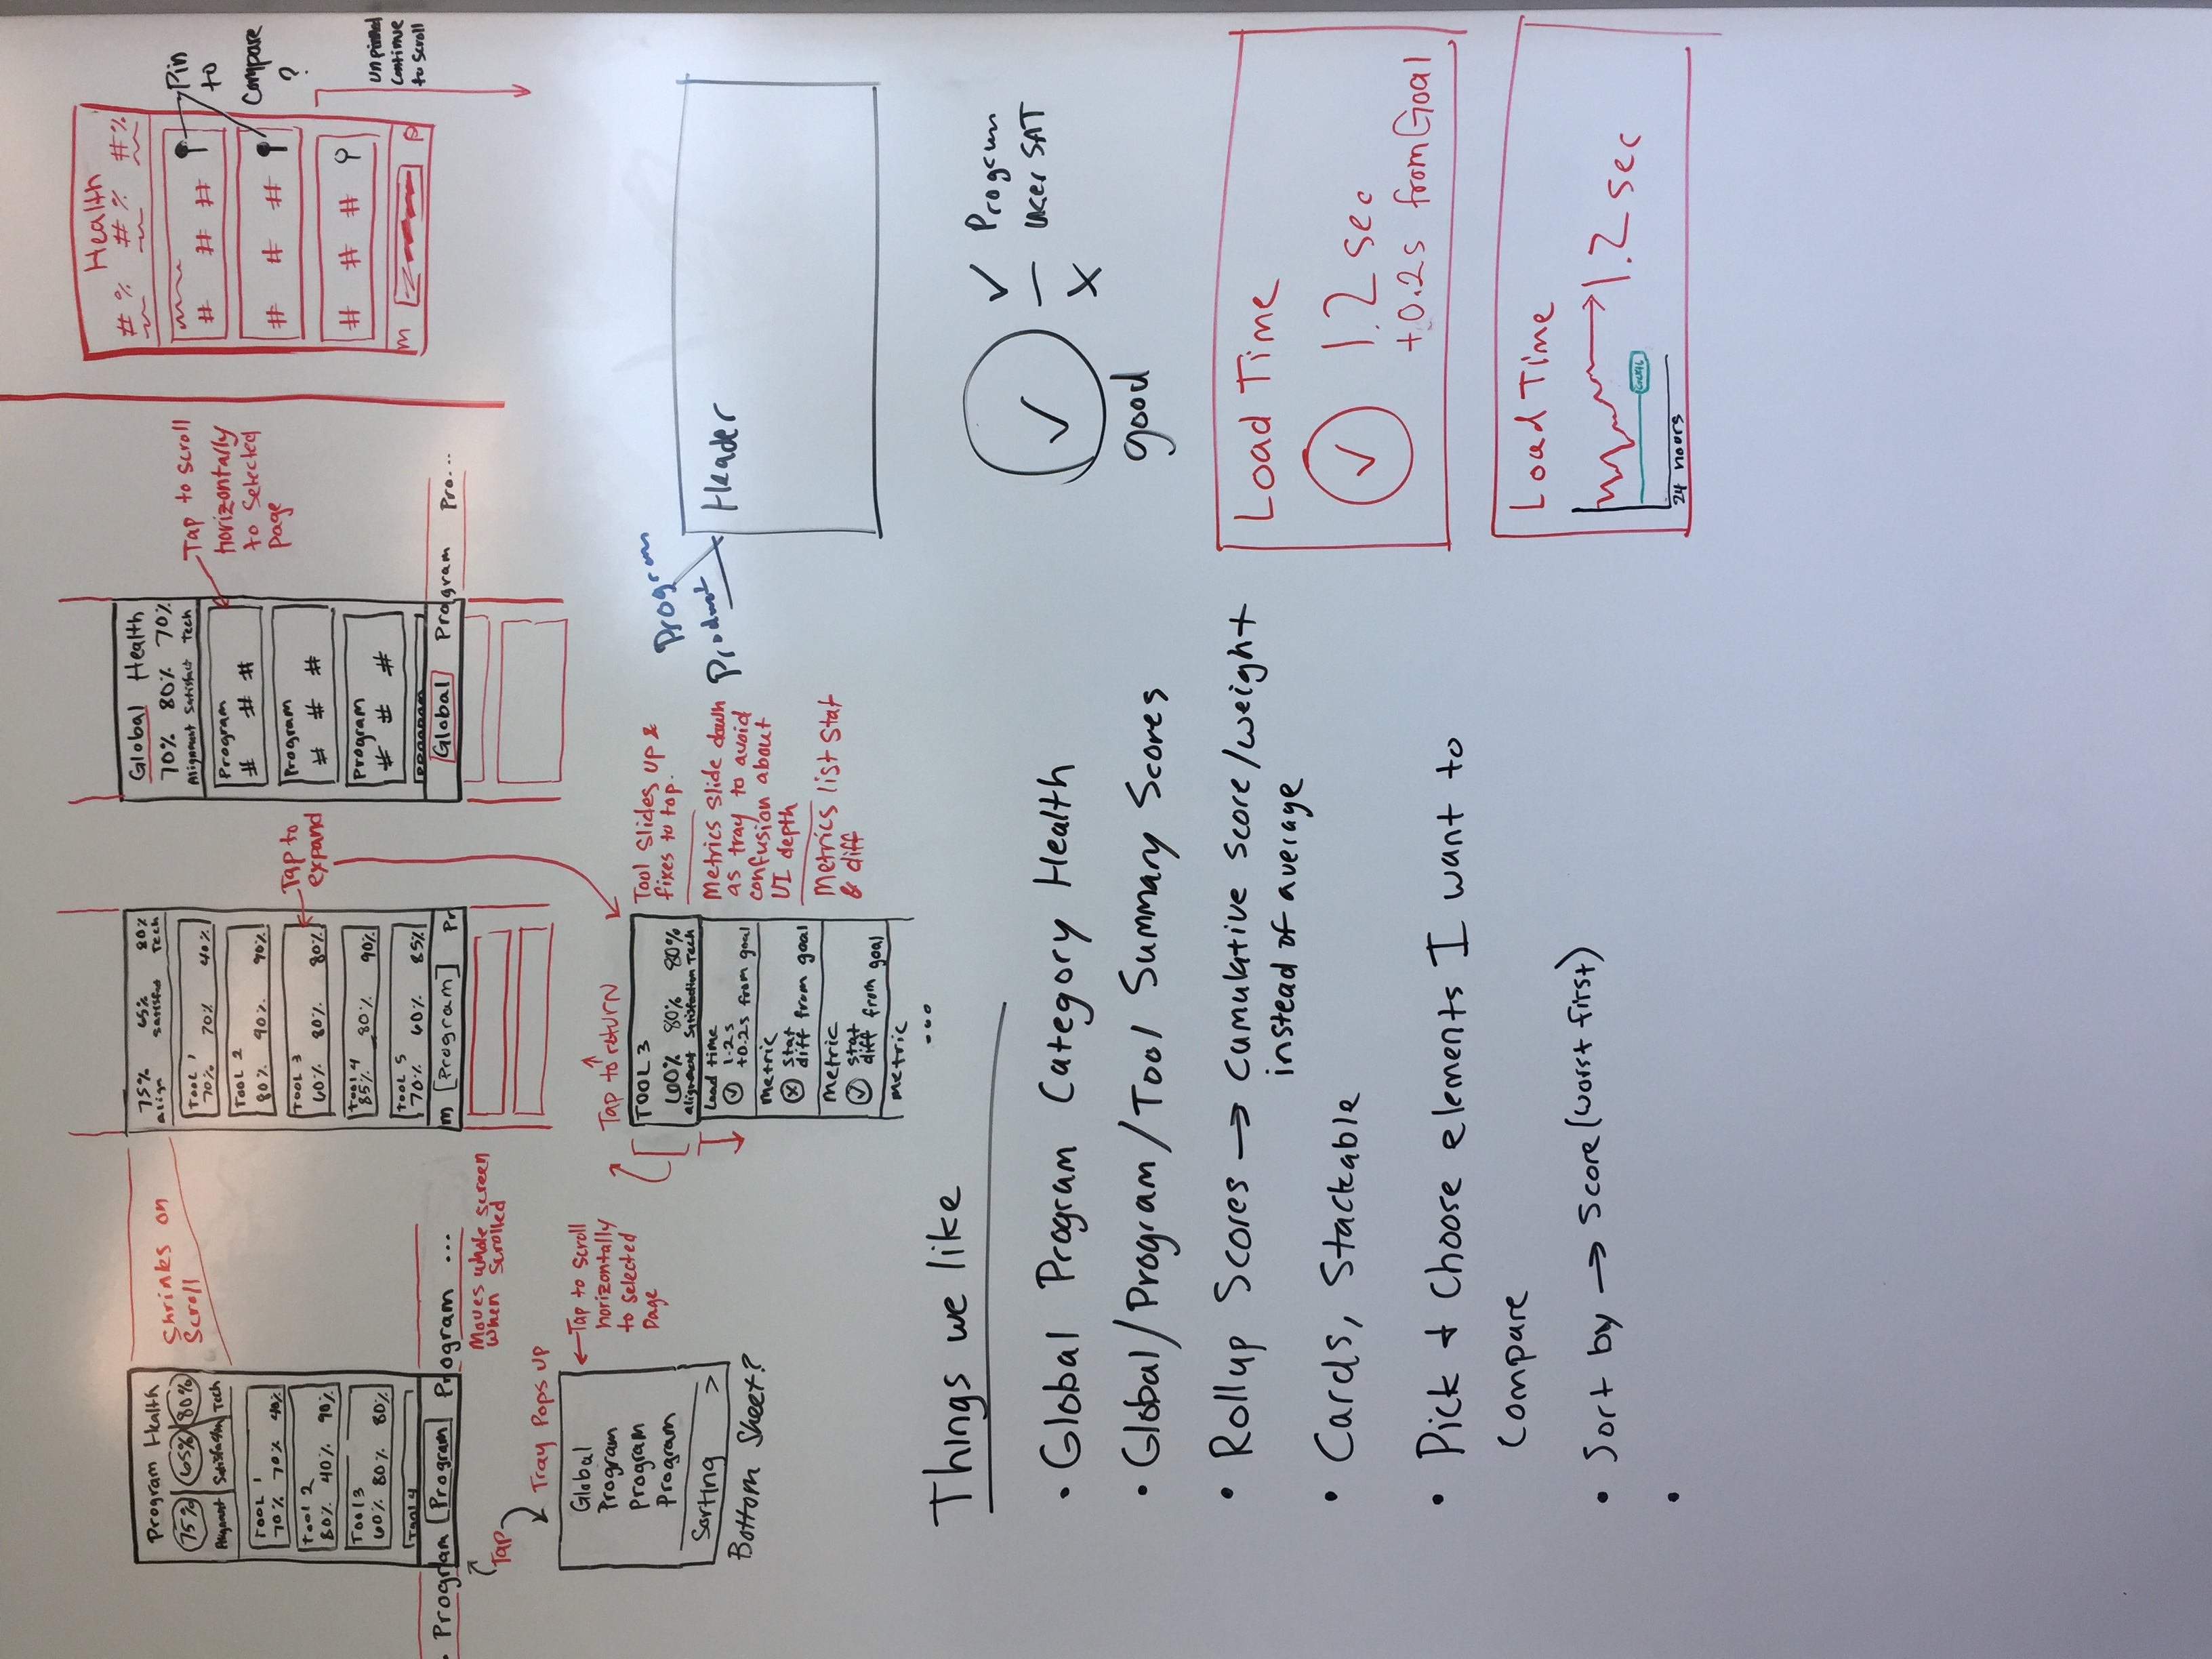 Program Health
75% 65% 80%
Alignment Satisfaction Tech
TOOL 1
70% 70% 40%
Tool 2
80% 40% 90%
Tool 3
60% 80% 80%
Tool 4
Program [Program] Program ...
Shrinks on
Scroll
Moves whole screen
when scrolled
Tap
Tray Pops up
Global
Program
Program
Program
Sorting >
Bottom Sheet?
Tap to scroll
horizontally
to selected
Page
75% 65% 80%
align Satisfact Tech
TOOL 1
70% 70% 40%
TOOL 2
80% 90% 90%
TOOL 3
60% 80% 80%
Tool 4
85% 80% 90%
TOOL 5
70% 60% 85%
m [Program] Pr
Tap to
expand
Tap to return
TOOL 3
60% 80% 80%
alignment Satisfaction Tech
Load time
1.2s
+0.2s from goal
Metric
stat
diff from goal
Metric
stat
diff from goal
Metric
...
Tool Slides up &
fixes to top.
Metrics slide down
as tray to avoid
confusion about
UI depth
Metrics list stat
& diff
Global Health
70% 80% 70%
Alignment Satisfact Tech
Program
# # #
Program
# # #
Program
# # #
Program
Global Program Pro...
Tap to scroll
horizontally
to selected
page
Health
# % # % # %
# # #
# # #
# # #
m P
Pin
to
Compare
?
unpinned
continue
to scroll
Program
Product
Header
Things we like
• Global Program Category Health
• Global/Program/Tool Summary Scores
• Rollup Scores → Cumulative Score/weight
instead of average
• Cards, Stackable
• Pick & Choose elements I want to
Compare
• Sort by → Score (worst first)
•
✓
good
✓ Program
— user SAT
X
Load Time
✓ 1.2 sec
+0.2s from Goal
Load Time
1.2 sec
24 hours